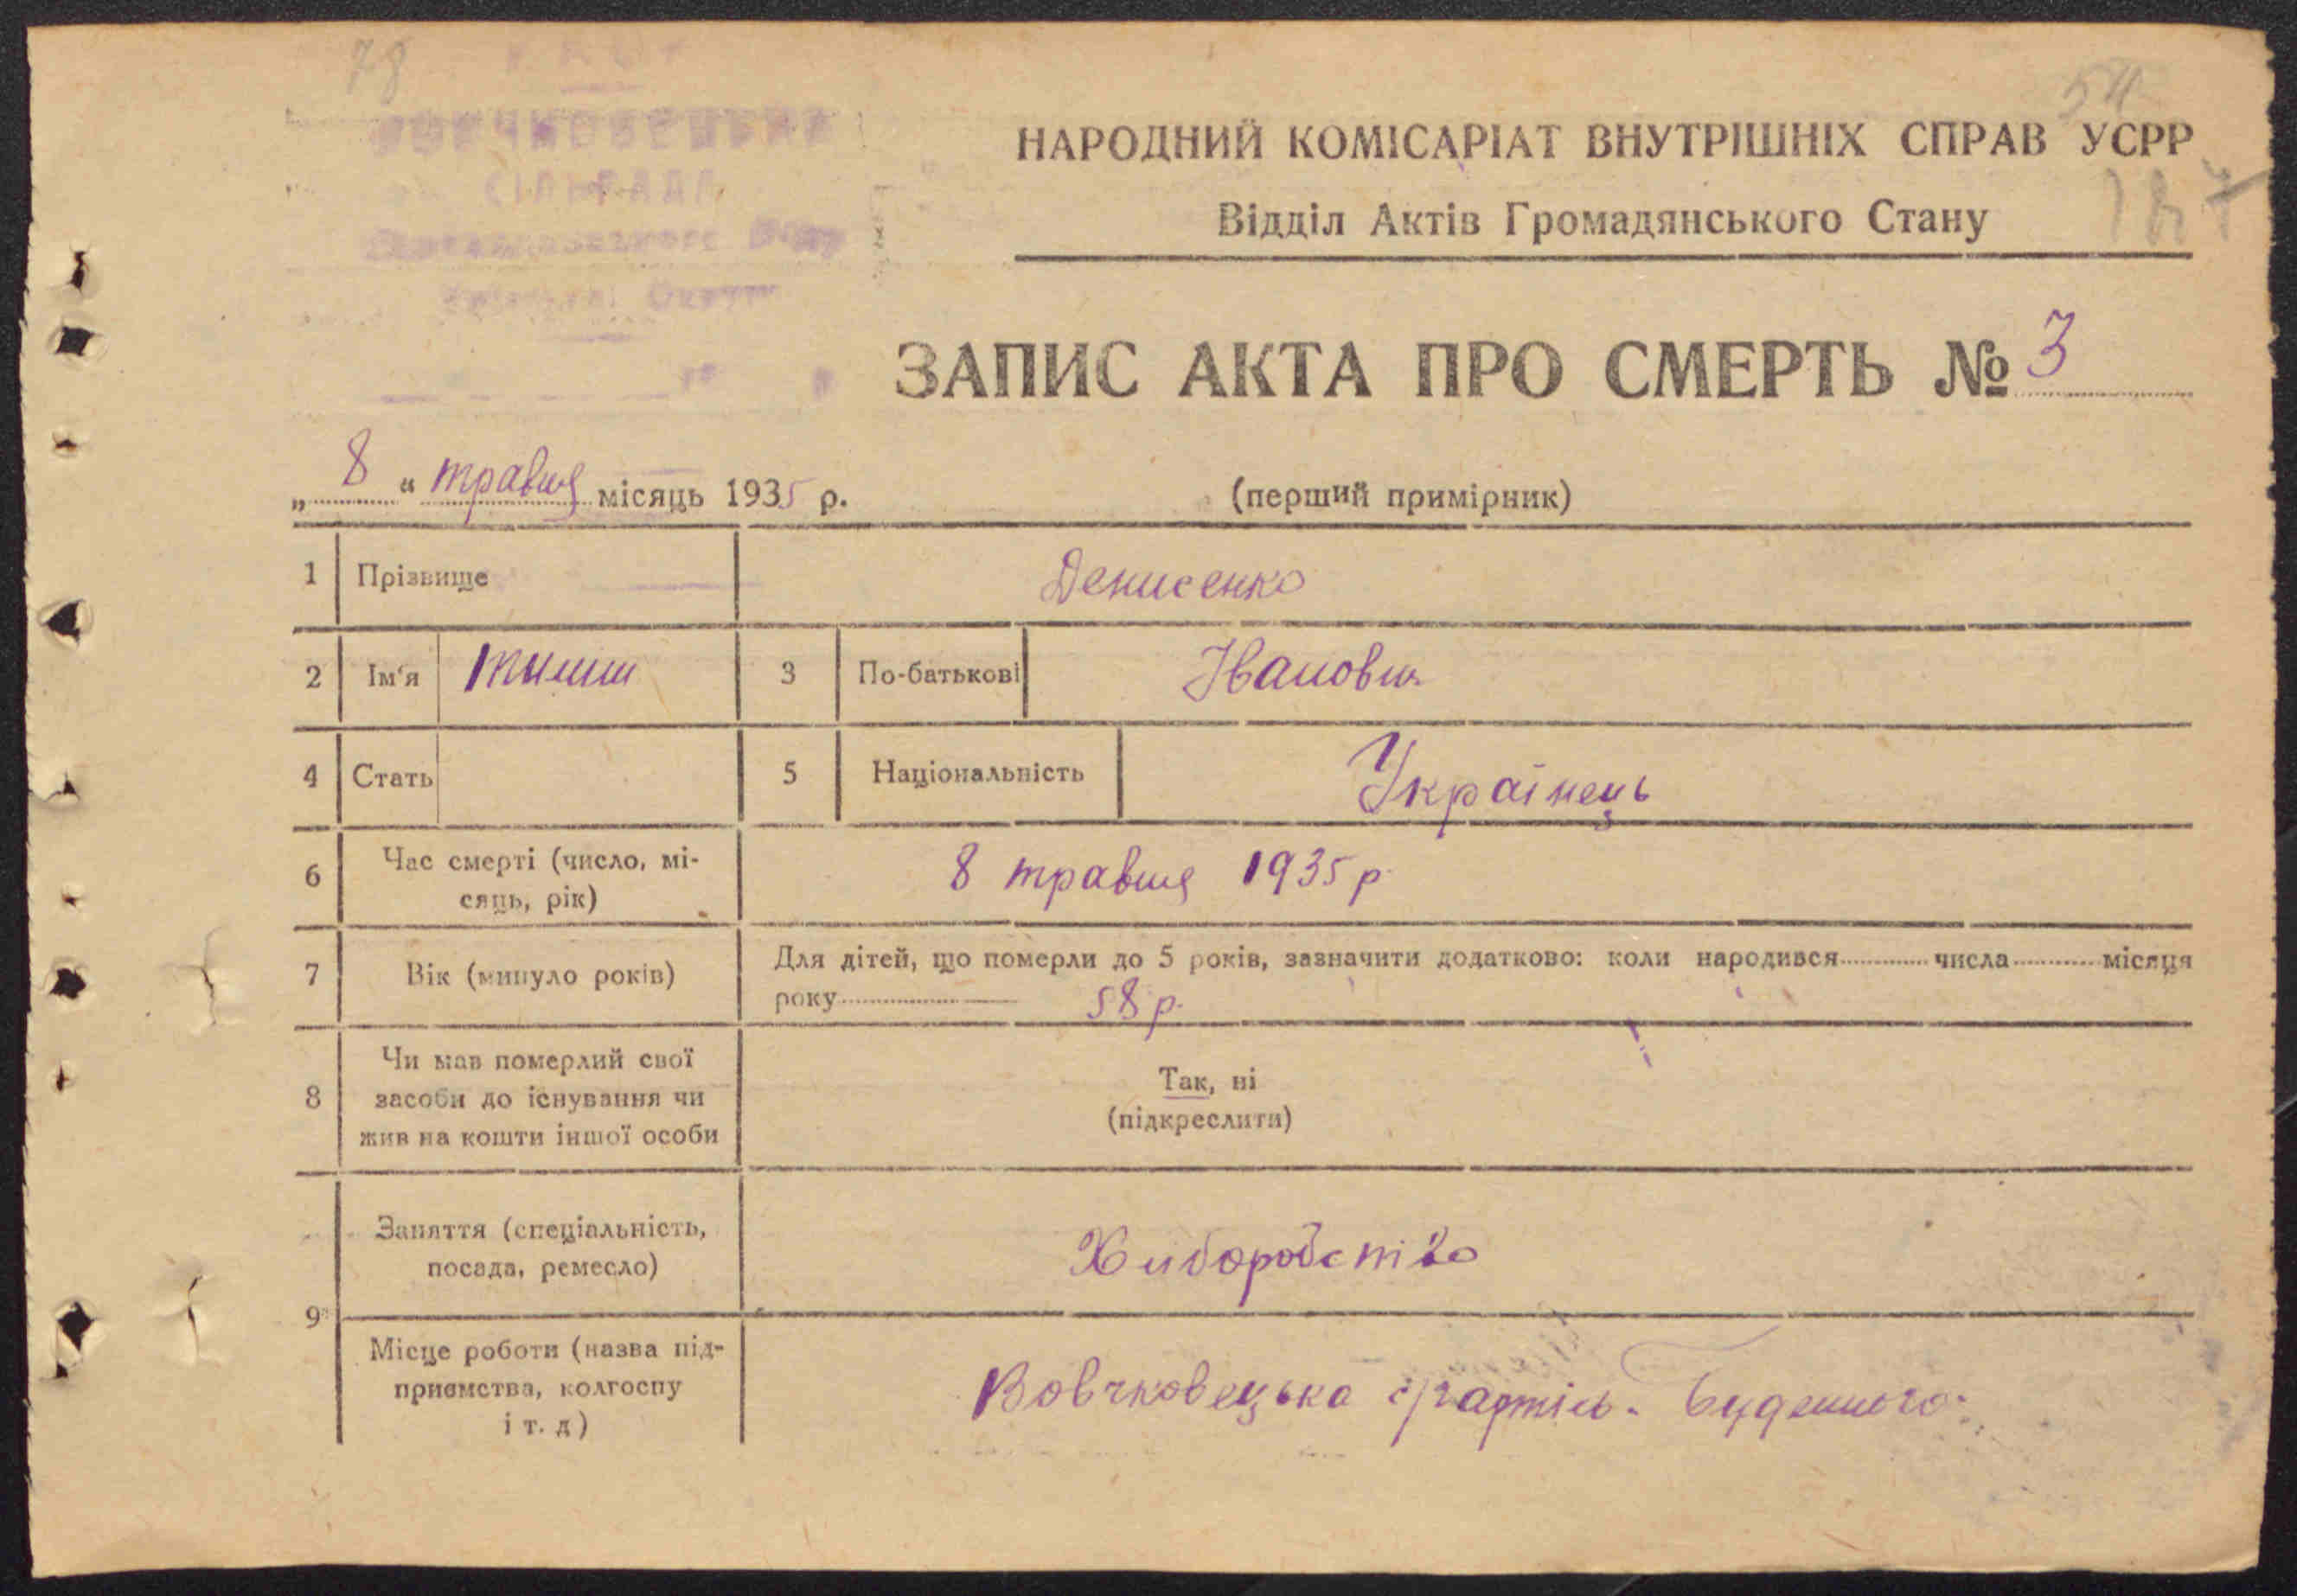 78
54
НАРОДНИЙ КОМІСАРІАТ ВНУТРІШНІХ СПРАВ УСРР
Відділ Актів Громадянського Стану
СІЛЬРАДА
ЗАПИС АКТА ПРО СМЕРТЬ № 3
„ 8 “ травня місяць 1935 р.
(перший примірник)
1 Прізвище Денисенко
2 Ім'я 3 По-батькові Іванович
4 Стать 5 Національність Українець
6 Час смерті (число, мі-
сяць, рік) 8 травня 1935 р.
7 Вік (минуло років) Для дітей, що померли до 5 років, зазначити додатково: коли народився числа місяця
року 58 р.
8 Чи мав померлий свої
засоби до існування чи
жив на кошти іншої особи
Так, ні
(підкреслити)
9 Заняття (спеціальність,
посада, ремесло) Хліборобство
Місце роботи (назва під-
приємства, колгоспу
і т. д)
Вовчковецька с/г артіль. Буденного.